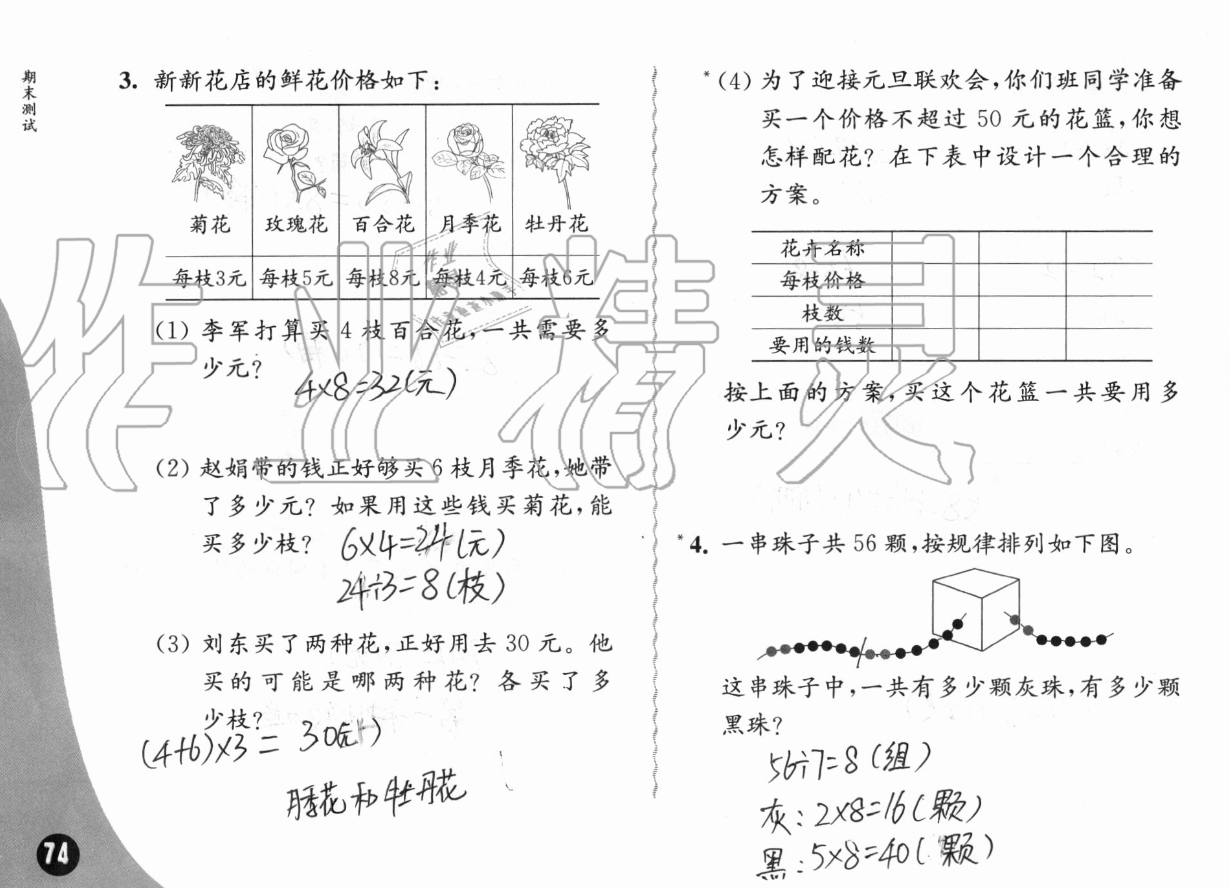 期末测试
3. 新新花店的鲜花价格如下：
菊花 玫瑰花 百合花 月季花 牡丹花
每枝3元 每枝5元 每枝8元 每枝4元 每枝6元
(1) 李军打算买 4 枝百合花，一共需要多
少元？
4×8=32(元)
(2) 赵娟带的钱正好够买 6 枝月季花，她带
了多少元？如果用这些钱买菊花，能
买多少枝？
6×4=24(元)
24÷3=8(枝)
(3) 刘东买了两种花，正好用去 30 元。他
买的可能是哪两种花？各买了多
少枝？
(4+6)×3= 30(元)
月季花和牡丹花
74
*(4) 为了迎接元旦联欢会，你们班同学准备
买一个价格不超过 50 元的花篮，你想
怎样配花？在下表中设计一个合理的
方案。
花卉名称
每枝价格
枝数
要用的钱数
按上面的方案，买这个花篮一共要用多
少元？
*4. 一串珠子共 56 颗，按规律排列如下图。
这串珠子中，一共有多少颗灰珠，有多少颗
黑珠？
56÷7=8(组)
灰：2×8=16(颗)
黑：5×8=40(颗)
作业精灵